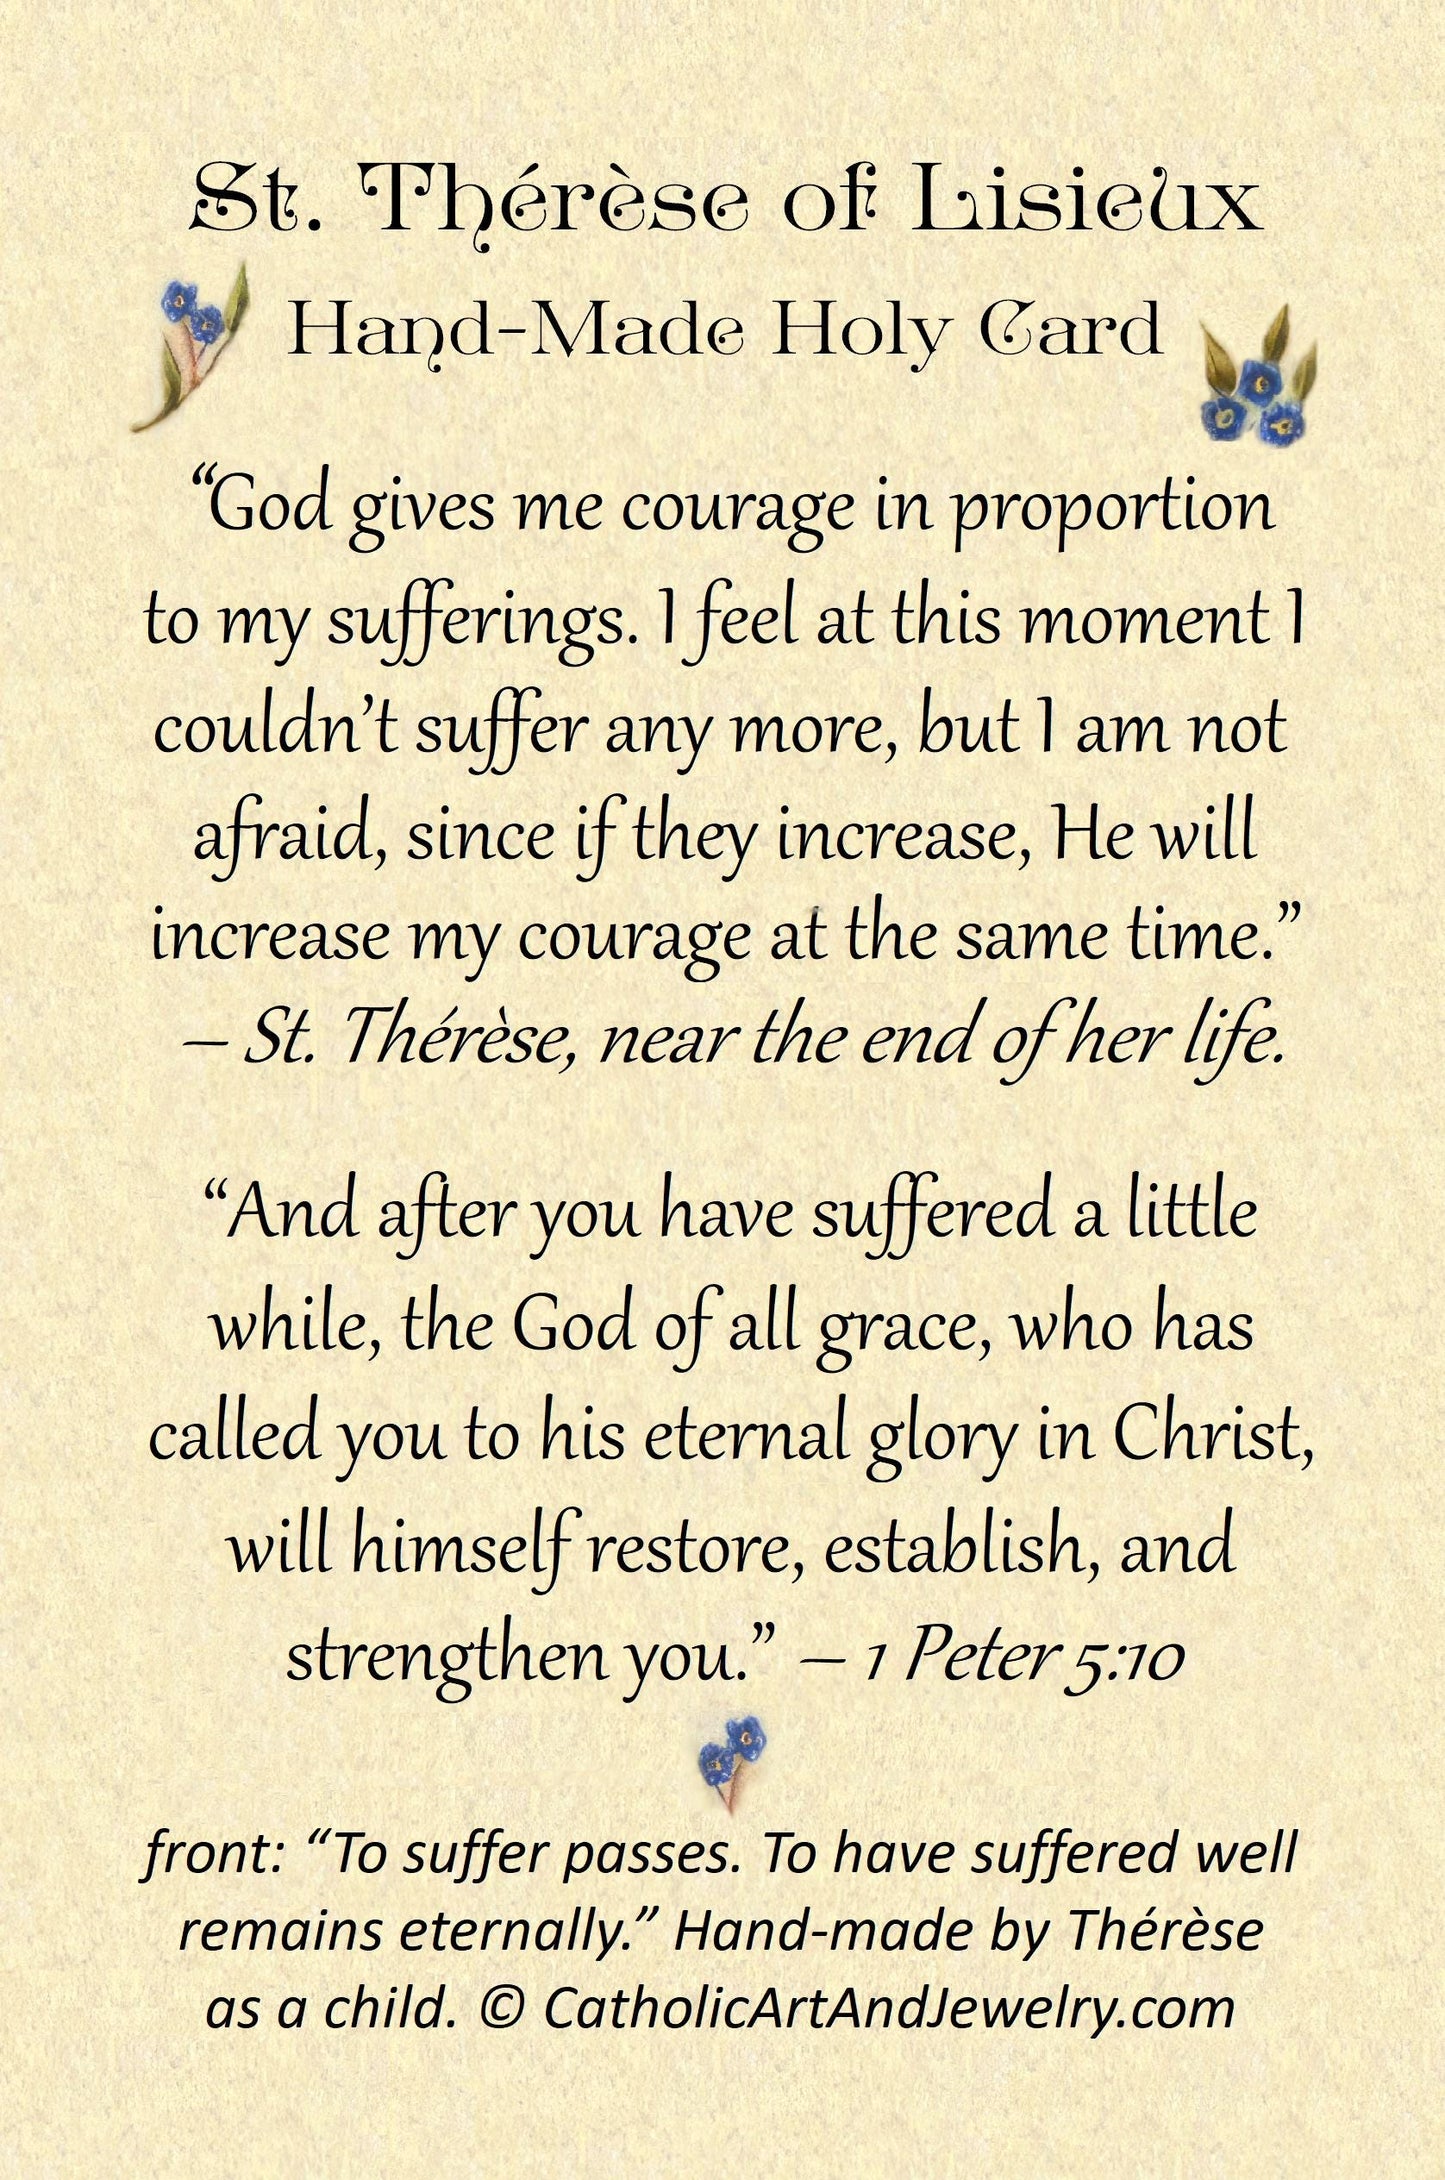 St. Thérèse of Lisieux
Hand-Made Holy Card
“God gives me courage in proportion
to my sufferings. I feel at this moment I
couldn’t suffer any more, but I am not
afraid, since if they increase, He will
increase my courage at the same time.”
– St. Thérèse, near the end of her life.
“And after you have suffered a little
while, the God of all grace, who has
called you to his eternal glory in Christ,
will himself restore, establish, and
strengthen you.” – 1 Peter 5:10
front: “To suffer passes. To have suffered well
remains eternally.” Hand-made by Thérèse
as a child. © CatholicArtAndJewelry.com